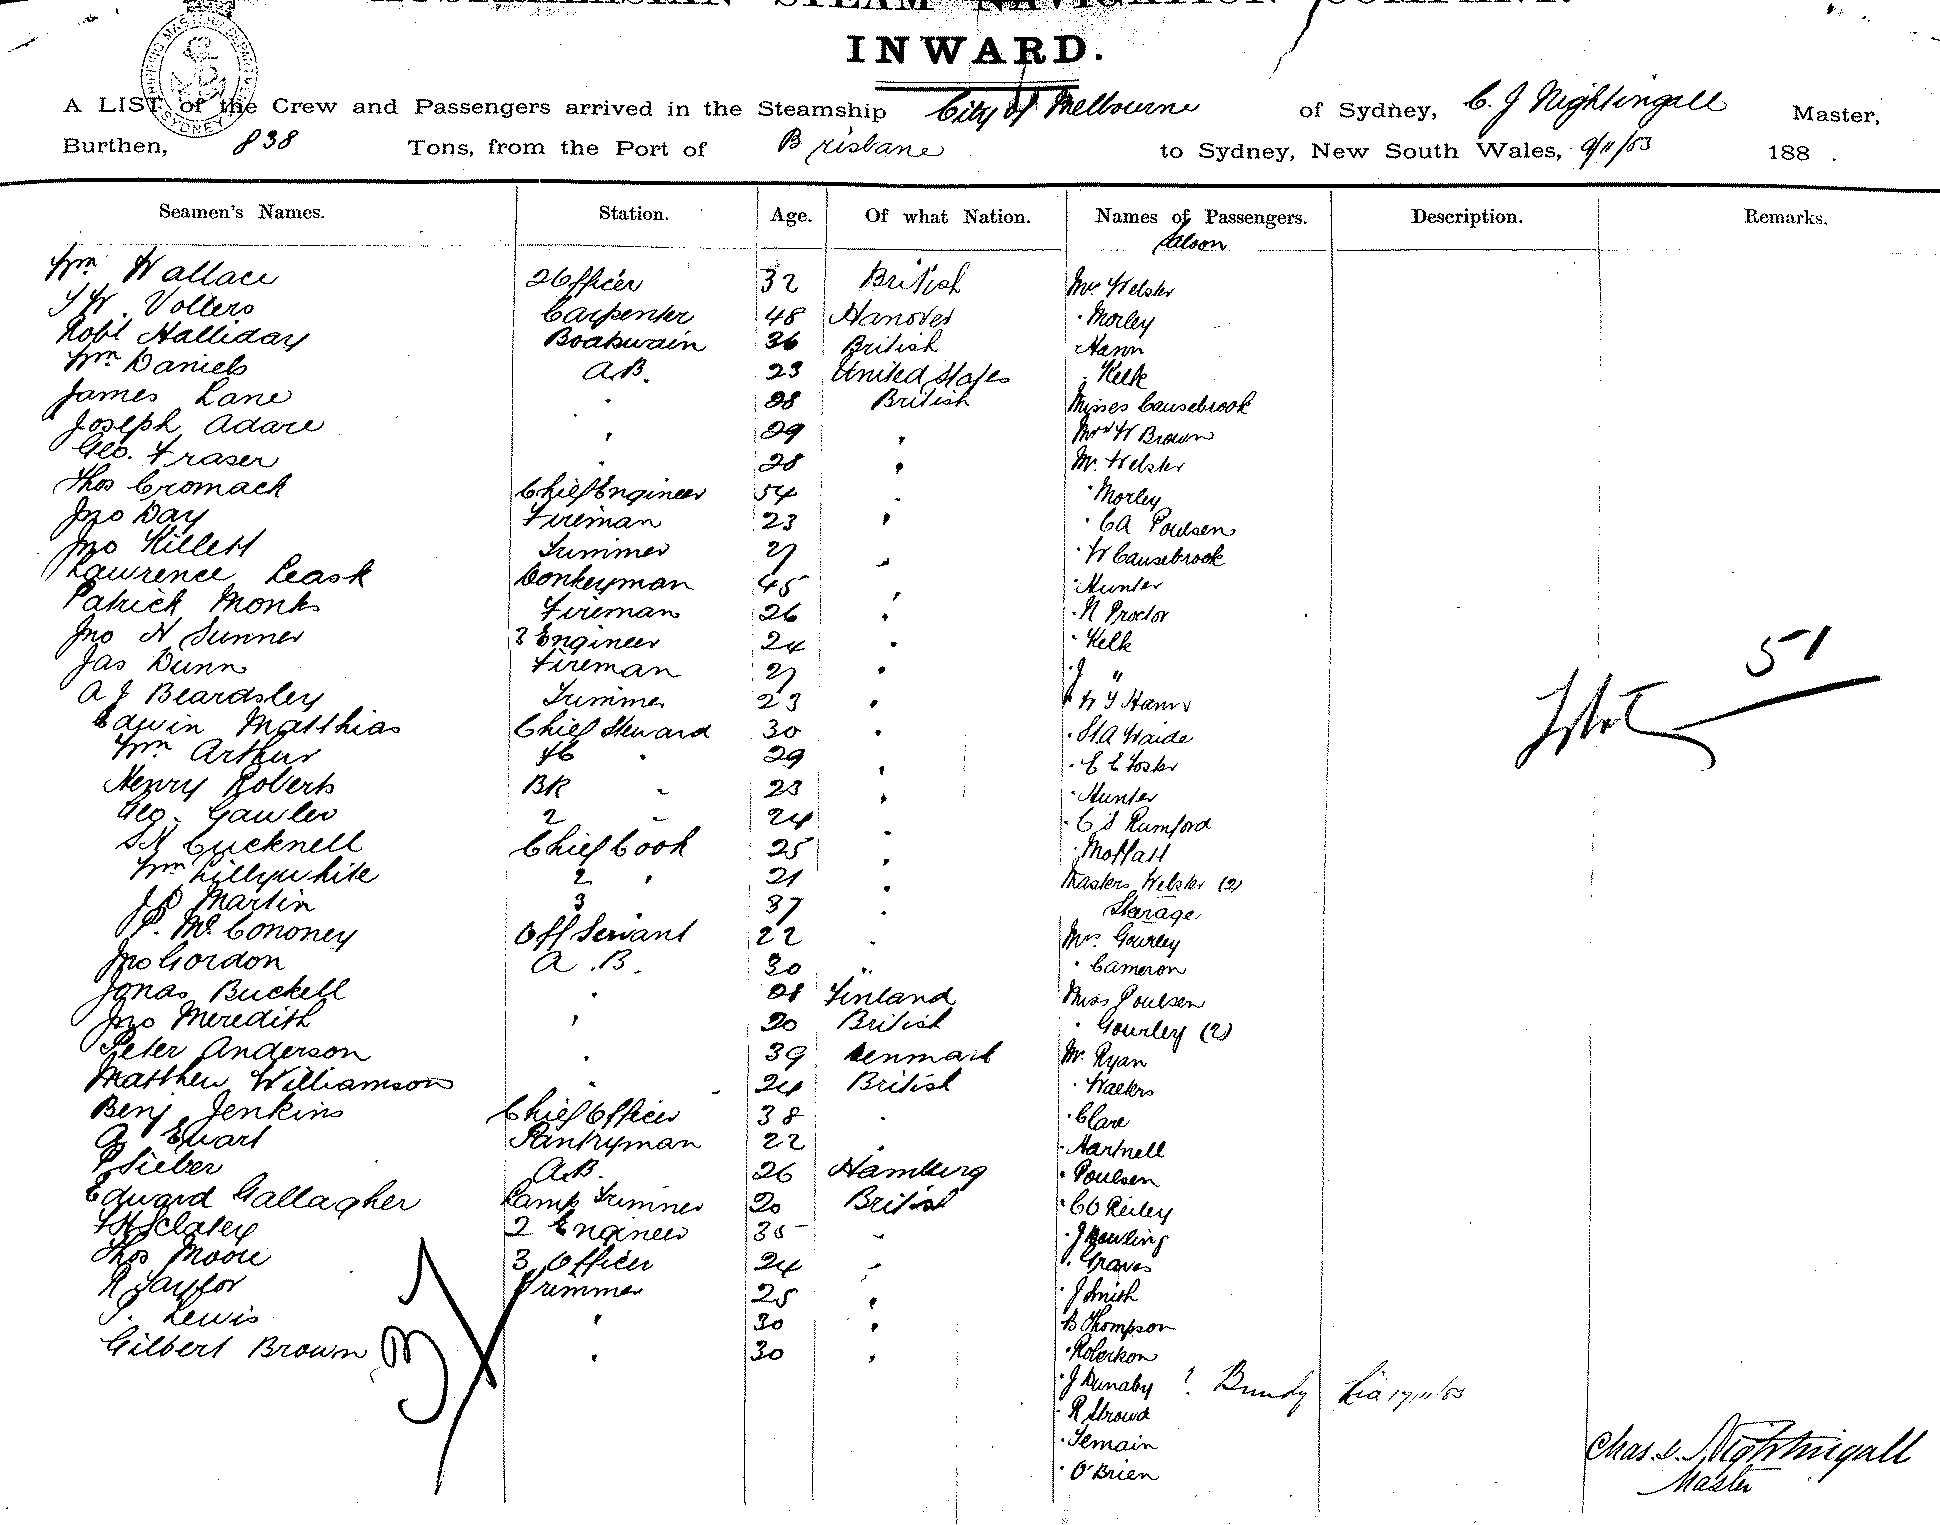 AUSTRALASIAN STEAM NAVIGATION COMPANY.
INWARD.
A LIST of the Crew and Passengers arrived in the Steamship City of Melbourne of Sydney, C. J Nightingall Master,
Burthen, 838 Tons, from the Port of Brisbane to Sydney, New South Wales, 9/11/83 188 .
Seamen's Names. Station. Age. Of what Nation. Names of Passengers. Description. Remarks.
Saloon
Wm Wallace 2 Officer 32 British Mrs Webster
Volters Carpenter 48 Hanover " Morley
Robt Halliday Boatswain 36 British " Hann
Wm Daniels A.B. 23 United States " Kelk
James Lane " 28 British Misses Causebrook
Joseph Adare " 29 " Mrs W Brown
Geo. Fraser " 28 " Mr. Webster
Thos Cromack Chief Engineer 54 " " Morley
Jno Day Fireman 23 " " C A Poulsen
Jno Killett Trimmer 27 " " W Causebrook
Lawrence Leask Donkeyman 45 " " Hunter
Patrick Monks Fireman 26 " " N Proctor
Jno H Sunner 3 Engineer 24 " " Kelk
Jas Dunn Fireman 27 " " J "
A J Beardsley Trimmer 23 " " Hann
Edwin Matthias Chief Steward 30 " " St A Waide
Wm Arthur " 29 " " E E Foster
Henry Roberts BK " 23 " " Hunter
Geo. Gawler 2 " 24 " " C S Rumford
Cucknell Chief Cook 25 " " Moffatt
Wm Lillywhite 2 " 21 " Masters Webster (2)
Martin 3 37 " Steerage
P. McCononey Off Servant 22 " Mrs. Gourley
Jno Gordon A.B. 30 " " Cameron
Jonas Buckell " 21 Finland Miss Poulsen
Jno Meredith " 20 British " Gourley (2)
Peter Anderson " 39 Denmark Mr. Ryan
Matthew Williamson " 24 British " Walters
Benj Jenkins Chief Officer 38 " " Clare
A Ewart Pantryman 22 " " Hartnell
P Sieber A.B. 26 Hamburg " Poulsen
Edward Gallagher Lamp Trimmer 20 British " Reiley
Sclater 2 Engineer 35 " " J Dowling
Thos Moore 3 Officer 24 " " Graves
R Taylor Trimmer 25 " " J Smith
Lewis " 30 " B Thompson
Gilbert Brown " 30 " " Robertson
" J Dunaby ? Bundy 17/11/83
" R Strowd
" Temain
" O'Brien
Total 51
37
Chas. J. Nightingall
Master